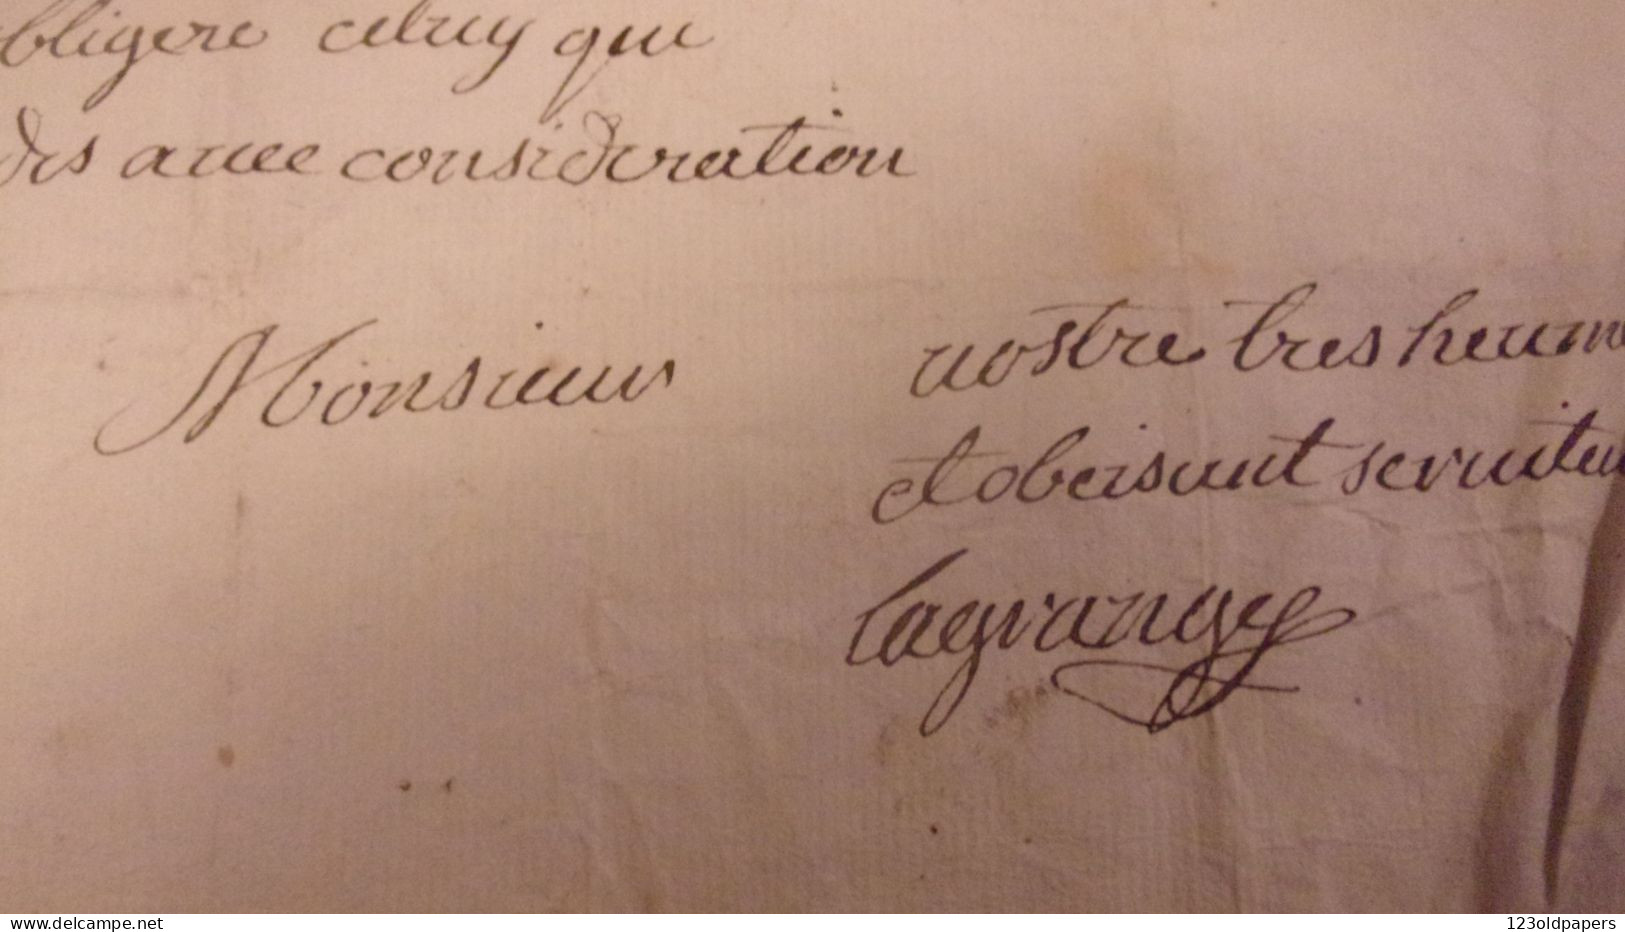 bligere celuy qui
avec consideration
Monsieur
vostre tres heum
et obeisant serviteu
lagrange
www.delcampe.net
123oldpapers